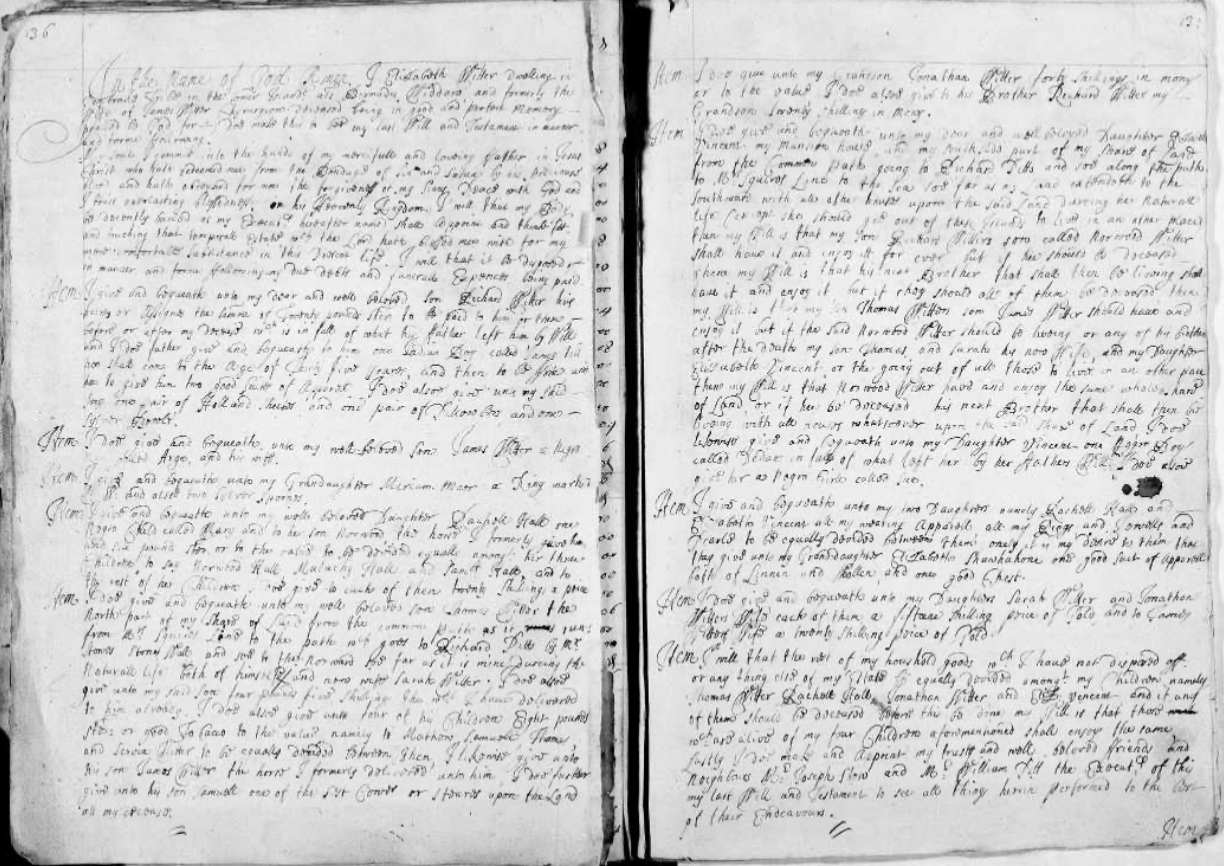 136
In the Name of God Amen. I Elizabeth Witter dwelling in
Tribe in the Somer Islands als Bermuda Widdow and formerly the
Wife of James Witter Chirurgeon deceased being in good and perfect Memory
praised be God for it Doe make this to bee my last Will and Testament in manner
and forme following.
My Soule I commit into the hands of my mercifull and loveing father in Jesus
Christ who hath redeemed mee from the Bondage of Sin and Satan by his pretious
blood and hath obtained for mee the forgivenes of my Sins, Peace with God and
I trust everlasting blessednes in his Heavenly Kingdom. I will that my Body
be decently buried as my Execut.rs hereafter named shall appoint and thinke fit
and touching that temporale Estate wch the Lord hath blessed mee with for my
more comfortable Subsistance in this Divers life I will that it be disposed
in manner and forme following my Due debts and funerall Expences being paid.
Item I give and bequeath unto my dear and well beloved son Richard Witter his
heires or Assignes the summe of Twenty pounds ster to be paid to him or them
before or after my decease wch is in full of what his father left him by Will
and I doe further give and bequeath to him one Indian Boy called James till
hee shall come to the Age of Thirty five yeares, and then to be free and
hee to give him two good suits of Apparel. I doe alsoe give unto my said
son one pair of Holland sheets and one pair of Pillowbes and one
silver Bowle.
Item I doe give and bequeath unto my well-beloved son James Witter a Negro
called Argo, and his wife.
Item I give and bequeath unto my Grandaughter Miriam Moor a Ring marked
and alsoe two silver spoones.
Item I give and bequeath unto my well beloved Daughter Rachell Hall one
Negro Child called Mary and to her son Norwood the horse I formerly gave him
and six pound ster or to the value to be devided equally amongst her three
Children to say Norwood Hall Malachy Hall and Hall, and to
the rest of her Children I doe give to each of them twenty shillings a piece
Item I doe give and bequeath unto my well beloved son Thomas Witter the
North part of my Share of Land from the common path as it runs
from Mr. Squires Land to the path wch goes to Richard Ditts by Mr.
Stowes stone Wall and soe to the Norward soe far as it is mine Dureing the
Naturall life both of himself and now wife Sarah Witter. I doe alsoe
give unto my said son four pounds five shillings the wch I have delivered
to him already. I doe alsoe give unto four of his Children Eight pounds
ster or good Tobacco to the value namely to Mathew, Samuell Thomas
and Witter to be equally devided between them. I likewise give unto
his son James Witter the horse I formerly delivered unto him. I doe further
give unto his son Samuell one of the Cowes or Steares upon the Land
att my decease.
Item I doe give unto my Grandson Jonathan Witter forty shillings in mony
or to the value I doe alsoe give to his Brother Richard Witter my
Grandson Twenty shilling in mony.
Item I doe give and bequeath unto my dear and well beloved Daughter Elizabeth
Vincent my Mansion house and my Southside part of my Share of Land
from the Common Path going to Richard Ditts and soe along the path
to Mr. Squires Line to the Sea soe far as my Land extendeth to the
Southward with all other houses upon the said Land Dureing her Naturall
life Except she should goe out of these Islands to live in an other place
then my Will is that my son Richard Witters son called Norwood Witter
shall have it and enjoy itt for ever but if he should be deceased
then my Will is that his next Brother that shall then be liveing shall
have it and enjoy it but if they should all of them be deceased then
my Will is that my son Thomas Witters son James Witter should have and
enjoy it but if the said Norwood Witter should be liveing or any of his
after the death my son Thomas, and Sarah his now Wife, and my Daughter
Elizabeth Vincent, or the going out of all those to live in an other place
then my Will is that Norwood Witter have and enjoy the same whole share
of Land, or if hee be deceased his next Brother that shall then be
liveing with all houses whatsoever upon the said Share of Land I doe
likewise give and bequeath unto my Daughter Vincent one Negro Boy
called in full of what left her by her Fathers Will. I doe alsoe
give her a Negro Girle called Sue.
Item I give and bequeath unto my two Daughters namely Rachell Hall and
Elizabeth Vincent all my wearing Apparell all my Rings and Jewells and
Pearle to be equally devided between them onely it is my desire to them that
they give unto my Granddaughter Elizabeth one good suit of Apparell
both of Linnen and Wollen and one good Chest.
Item I doe give and bequeath unto my Daughters Sarah Witter and Jonathan
Witters Wife each of them a fifteene shilling peice of Gold, and to James
Witters Wife a twenty shilling peice of Gold.
Item I will that the rest of my houshold goods wch I have not disposed of
or any thing else of my Estate be equally devided amongt my Children namely
Thomas Witter Rachell Hall, Jonathan Witter and Eliz. Vincent and if any
of them should be deceased before this be done my Will is that those
wch are alive of my four Children aforementioned shall enjoy the same
Lastly I doe make and Appoint my trusty and well beloved friends and
Neighbours Mr. Joseph Stow and Mr. William Ditt the Execut.rs of this
my last Will and Testament to see all things herein performed to the best
of their Endeavours.
Item